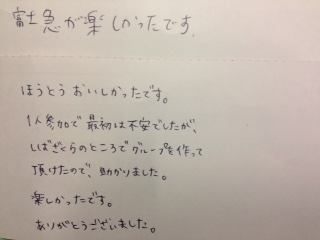 富士急が楽しかったです.
ほうとうおいしかったです。
1人参加で最初は不安でしたが、
しばざくらのところでグループを作って
頂けたので、助かりました。
楽しかったです。
ありがとうございました。